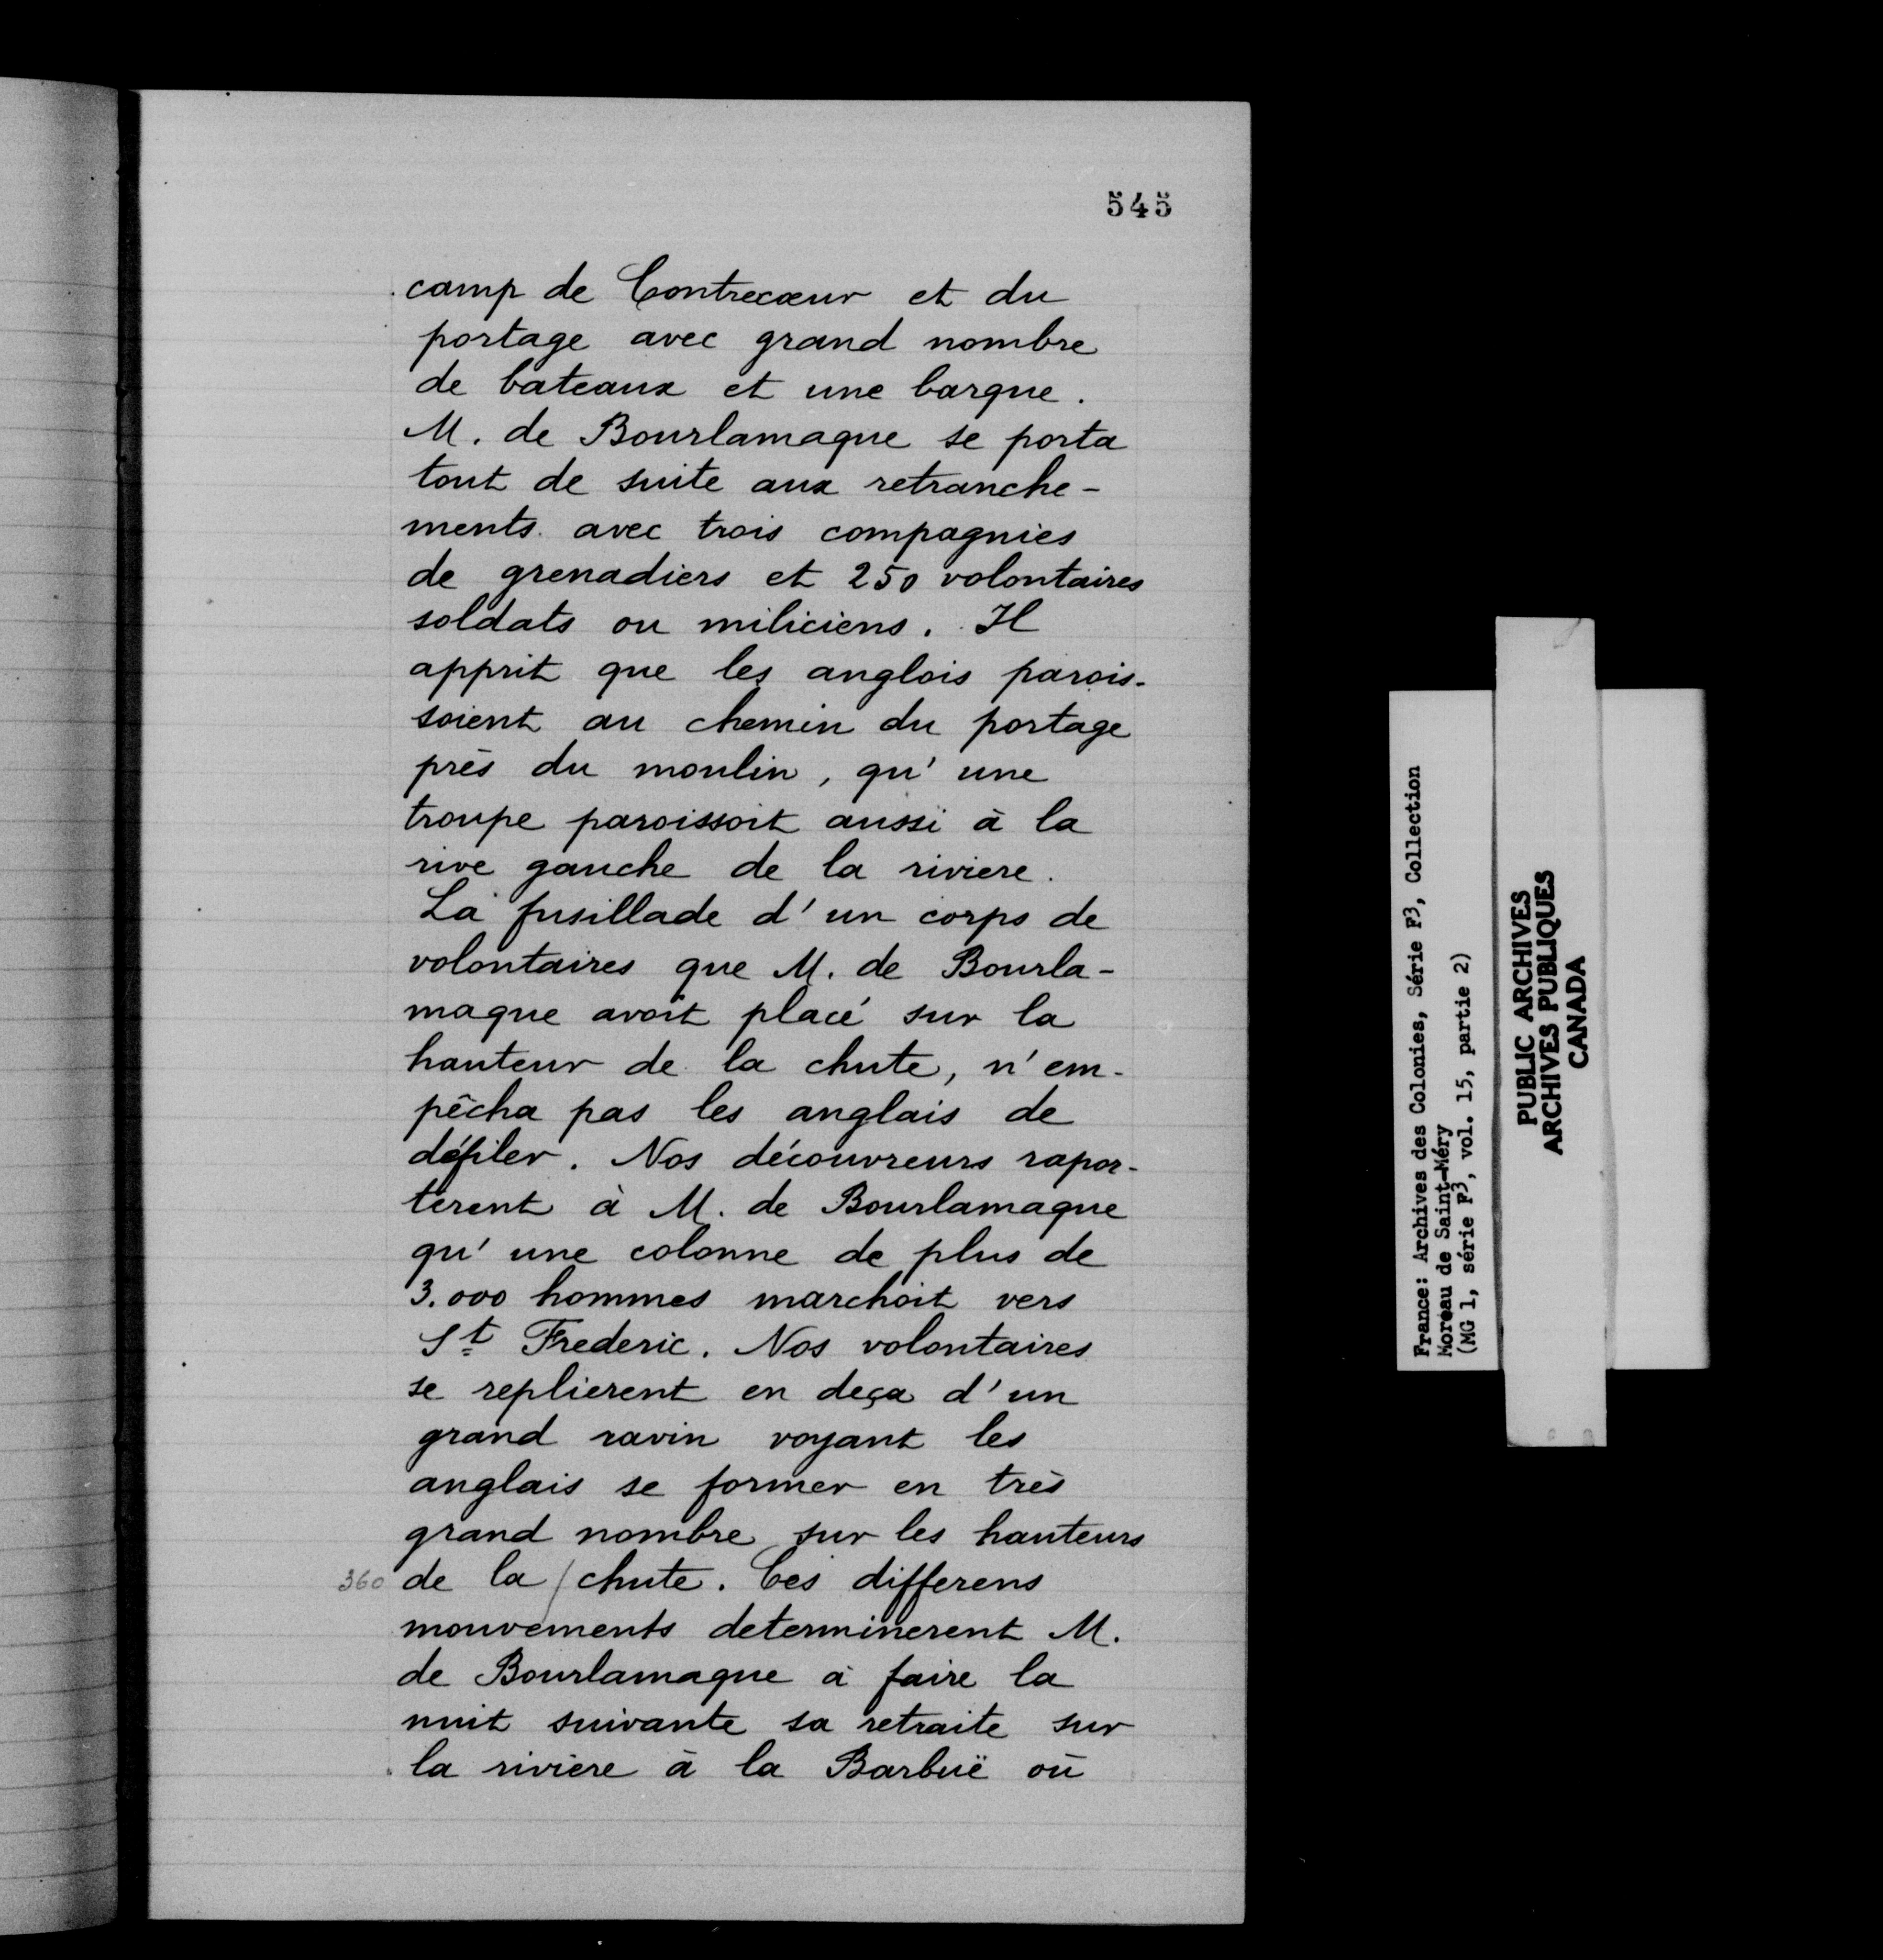 545
camp de Contrecœur et du
portage avec grand nombre
de bateaux et une barque.
M. de Bourlamaque se porta
tout de suite aux retranche-
ments avec trois compagnies
de grenadiers et 250 volontaires
soldats ou miliciens. Il
apprit que les anglois parois-
soient au chemin du portage
près du moulin, qu'une
troupe paroissoit aussi à la
rive gauche de la riviere.
La fusillade d'un corps de
volontaires que M. de Bourla-
maque avoit placé sur la
hauteur de la chute, n'em-
pêcha pas les anglais de
défiler. Nos découvreurs rapor-
terent à M. de Bourlamaque
qu'une colonne de plus de
3.000 hommes marchoit vers
St Frederic. Nos volontaires
se replierent en deça d'un
grand ravin voyant les
anglais se former en très
grand nombre sur les hauteurs
360 de la / chute. Ces differens
mouvements determinerent M.
de Bourlamaque à faire la
nuit suivante sa retraite sur
la rivière à la Barbuë où
France: Archives des Colonies, Série F3, Collection
Moreau de Saint-Méry
(MG 1, série F3, vol. 15, partie 2)
PUBLIC ARCHIVES
ARCHIVES PUBLIQUES
CANADA